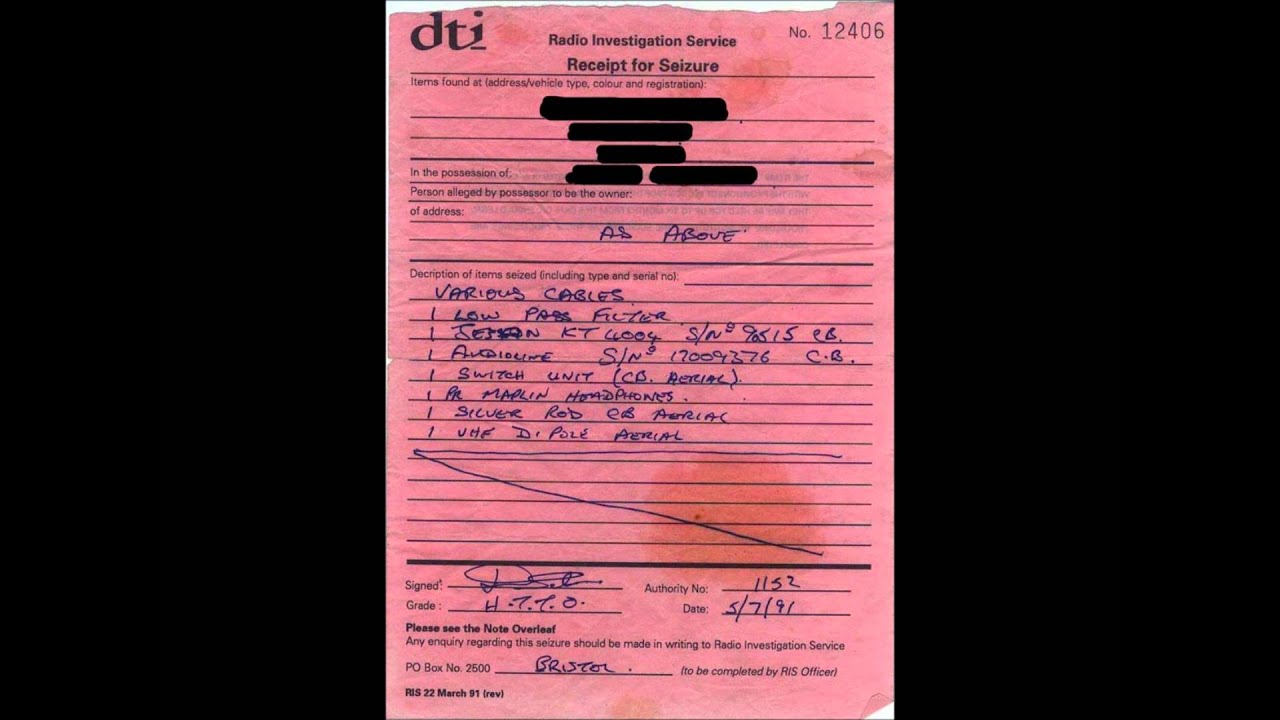 dti
No. 12406
Radio Investigation Service
Receipt for Seizure
Items found at (address/vehicle type, colour and registration):
In the possession of:
Person alleged by possessor to be the owner:
of address:
AS ABOVE
Decription of items seized (including type and serial no):
VARIOUS CABLES
1 LOW PASS FILTER
1 KT 4004 S/No CB.
1 AUDIOLINE S/No 17009376 C.B.
1 SWITCH UNIT (CB. AERIAL).
1 PR MAPLIN HEADPHONES.
1 SILVER ROD CB AERIAL
1 VHF DIPOLE AERIAL
Signed:
Authority No: 1152
Grade: H.T.T.O.
Date: 5/7/91
Please see the Note Overleaf
Any enquiry regarding this seizure should be made in writing to Radio Investigation Service
PO Box No. 2500 BRISTOL. (to be completed by RIS Officer)
RIS 22 March 91 (rev)